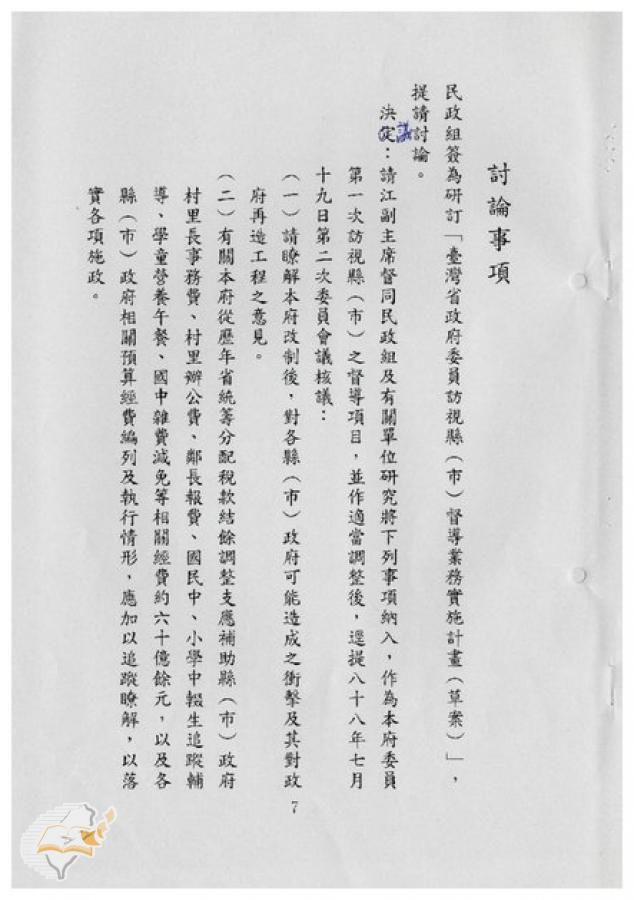 討論事項
民政組簽為研訂「臺灣省政府委員訪視縣（市）督導業務實施計畫（草案）」，
提請討論。
決定議：請江副主席督同民政組及有關單位研究將下列事項納入，作為本府委員
第一次訪視縣（市）之督導項目，並作適當調整後，逕提八十八年七月
十九日第二次委員會議核議：
（一）請瞭解本府改制後，對各縣（市）政府可能造成之衝擊及其對政
府再造工程之意見。
（二）有關本府從歷年省統籌分配稅款結餘調整支應補助縣（市）政府
村里長事務費、村里辦公費、鄰長報費、國民中、小學中輟生追蹤輔
導、學童營養午餐、國中雜費減免等相關經費約六十億餘元，以及各
縣（市）政府相關預算經費編列及執行情形，應加以追蹤瞭解，以落
實各項施政。
7